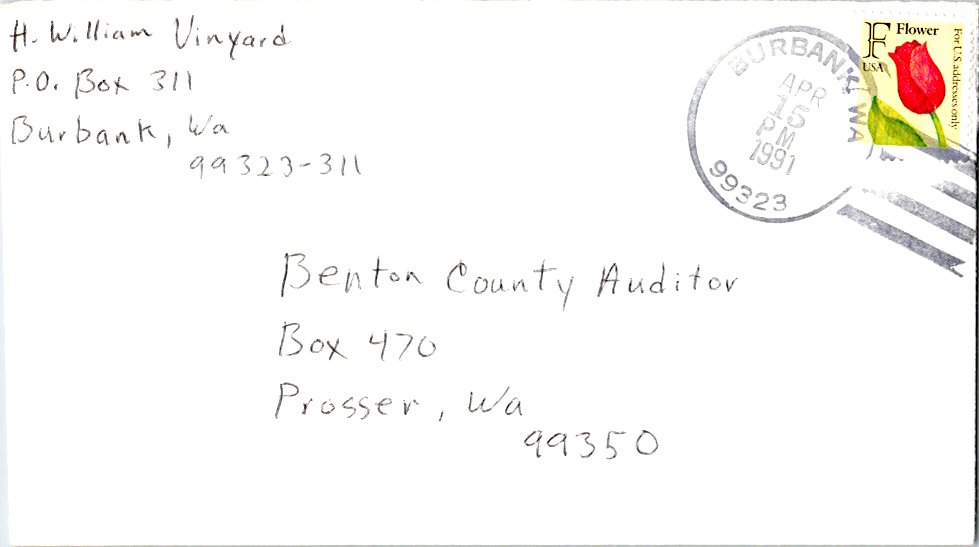 H. William Vinyard
P.O. Box 311
Burbank, Wa
99323-311
BURBANK, WA
APR
15
PM
1991
99323
F Flower
USA
For U.S. addresses only
Benton County Auditor
Box 470
Prosser, Wa
99350